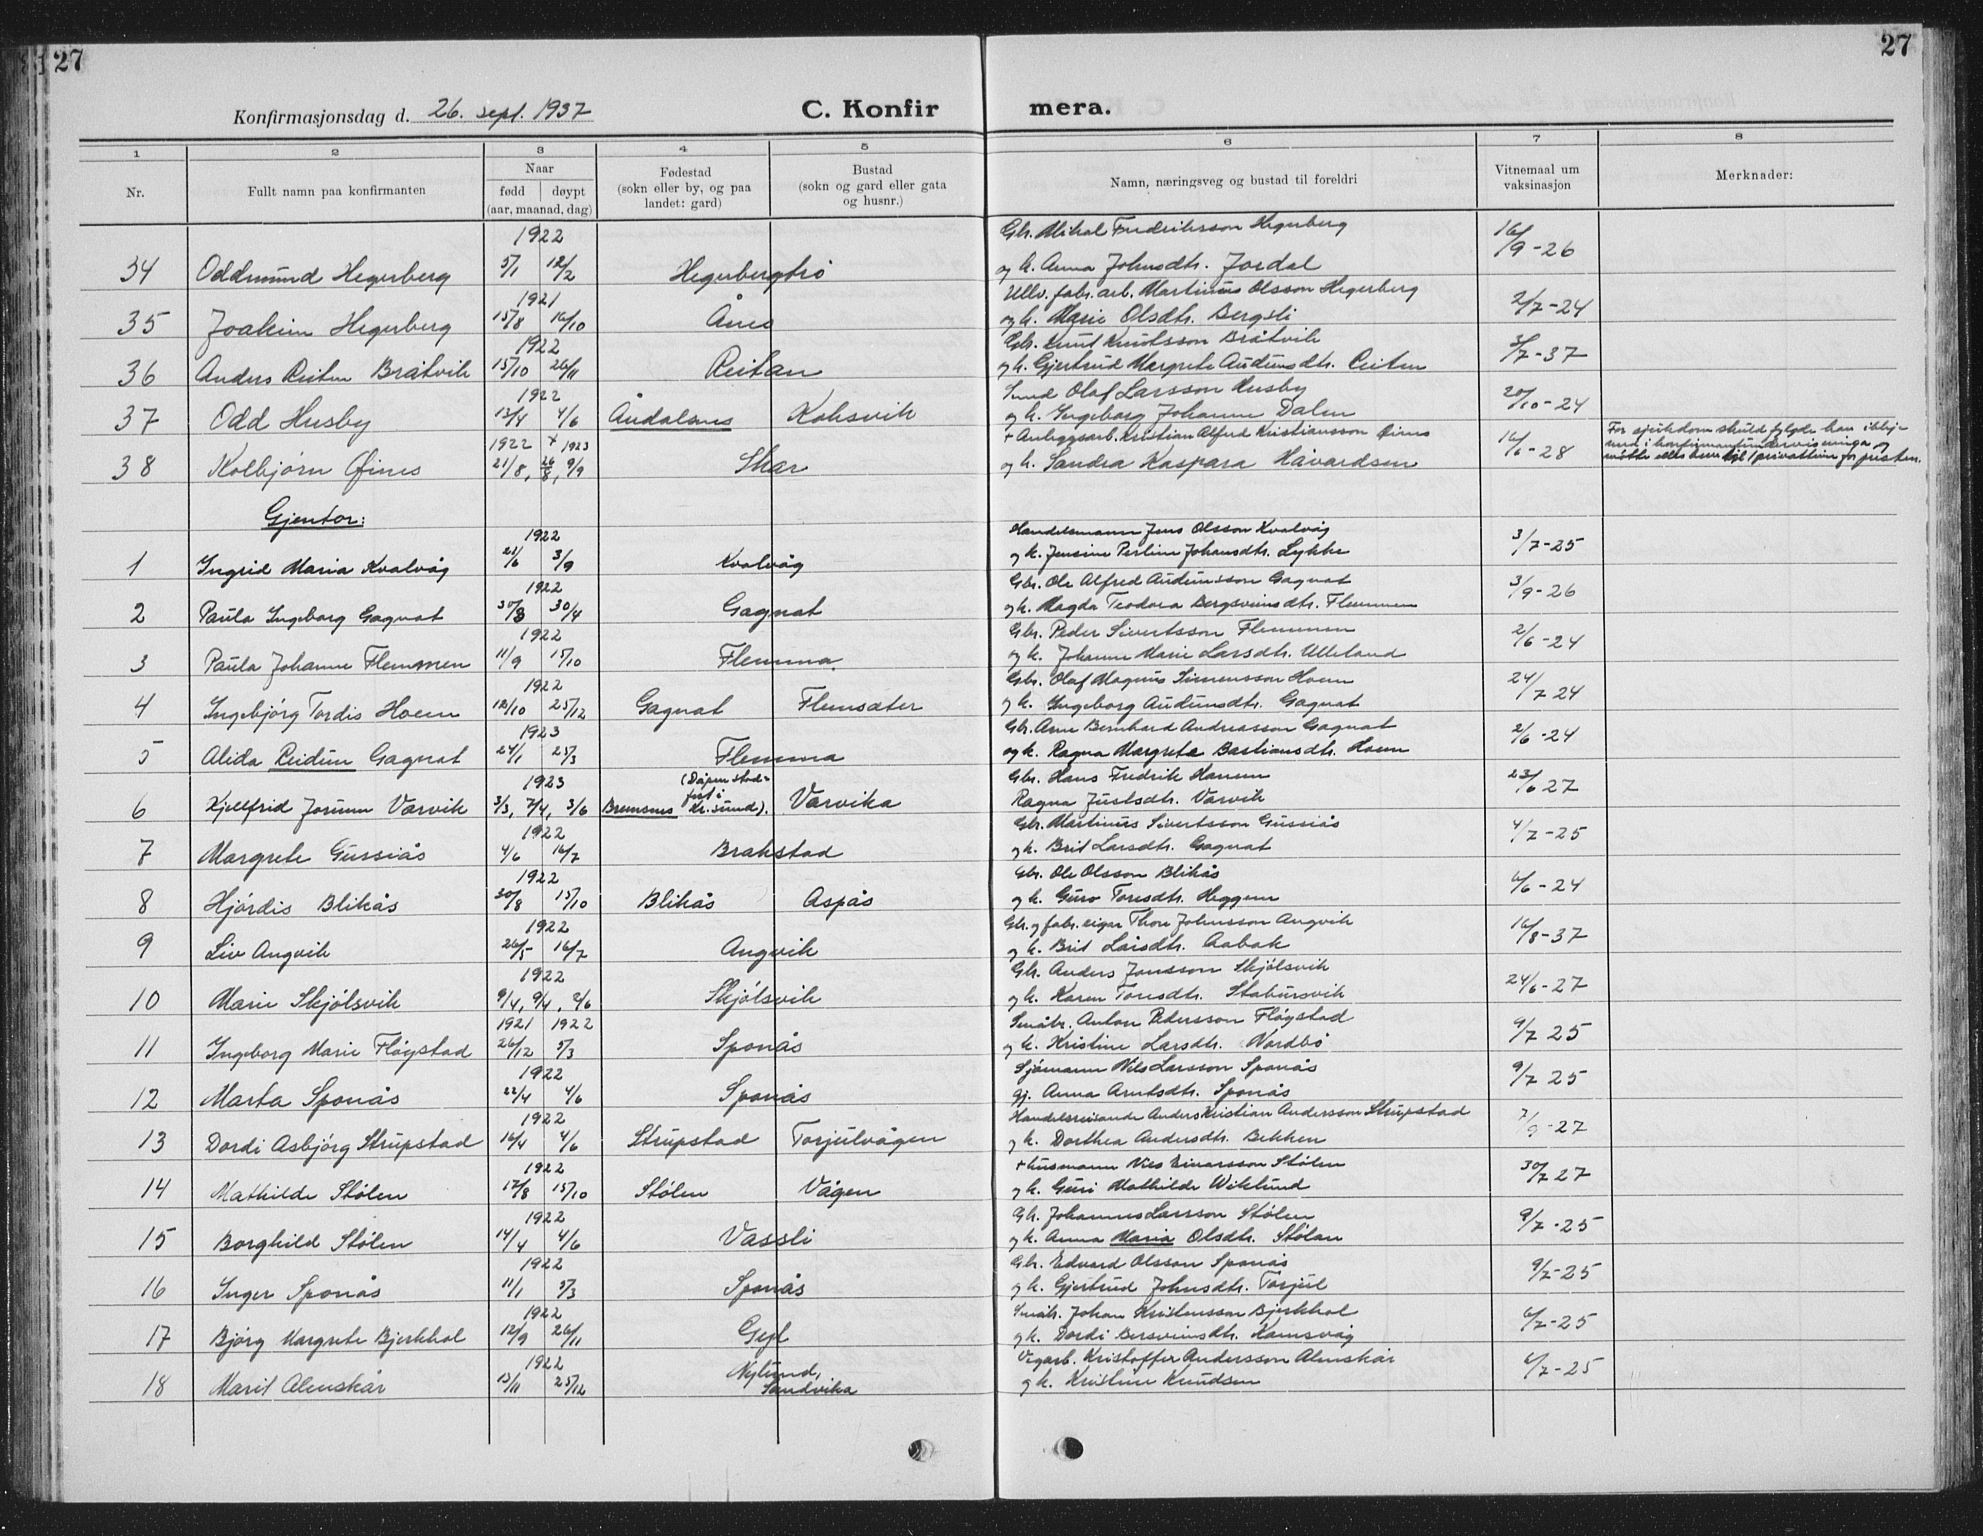 27
27
Konfirmasjonsdag d. 26. sept. 1937
C. Konfir
mera.
1 2 3 4 5 6 7 8
Nr.
Fullt namn paa konfirmanten
Naar
fødd døypt
(aar, maanad, dag)
Fødestad
(sokn eller by, og paa
landet: gard)
Bustad
(sokn og gard eller gata
og husnr.)
Namn, næringsveg og bustad til foreldri
Vitnemaal um
vaksinasjon
Merknader:
1922 Gbr. Mikal Fredriksson Hegerberg
34 Oddmund Hegerberg 5/1 12/2 Hegerbergtrø og k. Anna Johnsdtr. Jordal 16/9-26
1921 Ullv. fabr. arb. Martinus Olsson Hegerberg
35 Joakim Hegerberg 15/8 16/10 Ånes og k. Marie Olsdtr. Bergsli 2/7-24
1922 Gbr. Knut Knutsson Bråtvik
36 Anders Reiten Bråtvik 15/10 26/11 Reitan og k. Gjertrud Margrete Audunsdtr. Reiten /7-37
1922 Smed Olaf Larsson Husby
37 Odd Husby 13/4 4/6 Åndalsnes Koksvik og k. Ingeborg Johanne Dalen 20/10-24
1922 + 1923 + Anleggsarb. Kristian Alfred Kristiansson Øines
38 Kolbjørn Øines 21/8, 26/8, 9/9 Skar og k. Sandra Kaspara Håvardsen 16/6-28
For sjukdom skuld fylgde han ikkje
med i konfirmantundervisninga og
møtte ellers berre til 1 privattime for presten.
Gjentor:
1922 Handelsmann Jens Olsson Kvalvåg
1 Ingrid Maria Kvalvåg 21/6 3/9 Kvalvåg og k. Jensine Perline Johansdtr. Lykke 3/7-25
1922 Gbr. Ole Alfred Audunsson Gagnat
2 Paula Ingeborg Gagnat 30/3 30/4 Gagnat og k. Magda Teodora Bergsveinsdtr. Flemmen 3/9-26
1922 Gbr. Peder Sivertsson Flemmen
3 Paula Johanne Flemmen 11/9 15/10 Flemma og k. Johanne Marie Larsdtr. Ulleland 2/6-24
1922 Gbr. Olaf Magnus Simensson Hoem
4 Ingebjørg Tordis Hoem 12/10 25/12 Gagnat Flemsæter og k. Ingeborg Audunsdtr. Gagnat 24/7 24
1923 Gbr. Arne Bernhard Andreasson Gagnat
5 Alida Reidun Gagnat 24/1 25/3 Flemma og k. Ragna Margrete Bastiansdtr. Hoem 2/6-24
1923 (Dåpen stad-
fest i
Kr.sund). Gbr. Hans Fredrik Hansen
6 Kjellfrid Jorunn Varvik 3/3, 7/4, 3/6 Bremsnes Varvika Ragna Justsdtr. Varvik 23/6 27
1922 Gbr. Martinus Sivertsson Gussiås
7 Margrete Gussiås 4/6 16/7 Brakstad og k. Brit Larsdtr. Gagnat 4/7-25
1922 Gbr. Ole Olsson Blikås
8 Hjørdis Blikås 30/8 15/10 Blikås Aspås og k. Guro Toresdtr. Heggem 6/6-24
1922 Gbr. og fabr. eigar Thore Johnsson Angvik
9 Liv Angvik 26/5 16/7 Angvik og k. Brit Larsdtr. Aabak 16/8-37
1922 Gbr. Anders Jonsson Skjølsvik
10 Marie Skjølsvik 9/4, 9/4, 2/6 Skjølsvik og k. Karen Toresdtr. Stabursvik 24/6-27
1921 1922 Småbr. Anton Pedersson Fløystad
11 Ingeborg Marie Fløystad 26/12 5/3 Sponås og k. Kristine Larsdtr. Nordbø 9/7 25
1922 Sjømann Nils Larsson Sponås
12 Marta Sponås 22/4 4/6 Sponås gj. Anna Arntsdtr. Sponås 9/7 25
1922 Handelsreisande Anders Kristian Andersson Strupstad
13 Dordi Asbjørg Strupstad 16/4 4/6 Strupstad Torjulvågen og k. Dorthea Andersdtr. Bekken 7/9-27
1922 + husmann Nils Einarsson Stølen
14 Mathilde Stølen 17/8 15/10 Stølen Vågen og k. Guri Mathilde Wiklund 30/7 27
1922 Gbr. Johannes Larsson Stølen
15 Borghild Stølen 14/4 4/6 Vassli og k. Anna Maria Olsdtr. Stølan 9/7-25
1922 Gbr. Edvard Olsson Sponås
16 Inger Sponås 11/1 5/3 Sponås og k. Gjertrud Johnsdtr. Torjul 9/7-25
1922 Småbr. Johan Kristensson Bjerkhol
17 Bjørg Margrete Bjerkhol 12/9 26/11 Gyl og k. Dordi Bersveinsdtr. Hamsvåg 6/7-25
1922 Nylund, Vegarb. Kristoffer Andersson Alenskår
18 Marit Alenskår 13/11 25/12 Sandvika og k. Kristine Knudsen 6/7-25